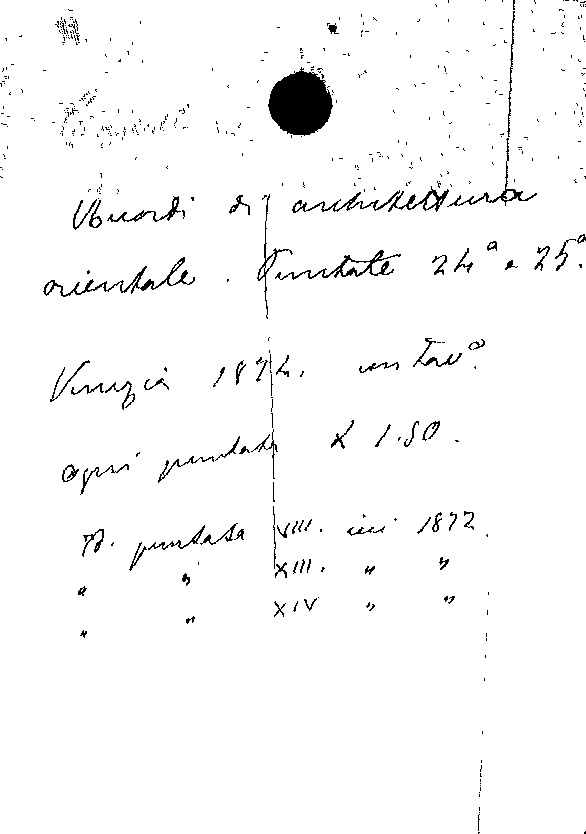 Ricordi di architettura
orientale. Puntate 24ª e 25ª.
Venezia 1874. con Tavᵉ
ogni puntata £ 1.50.
Id. puntata VIII. ivi 1872.
" " XIII. " "
" " XIV " "